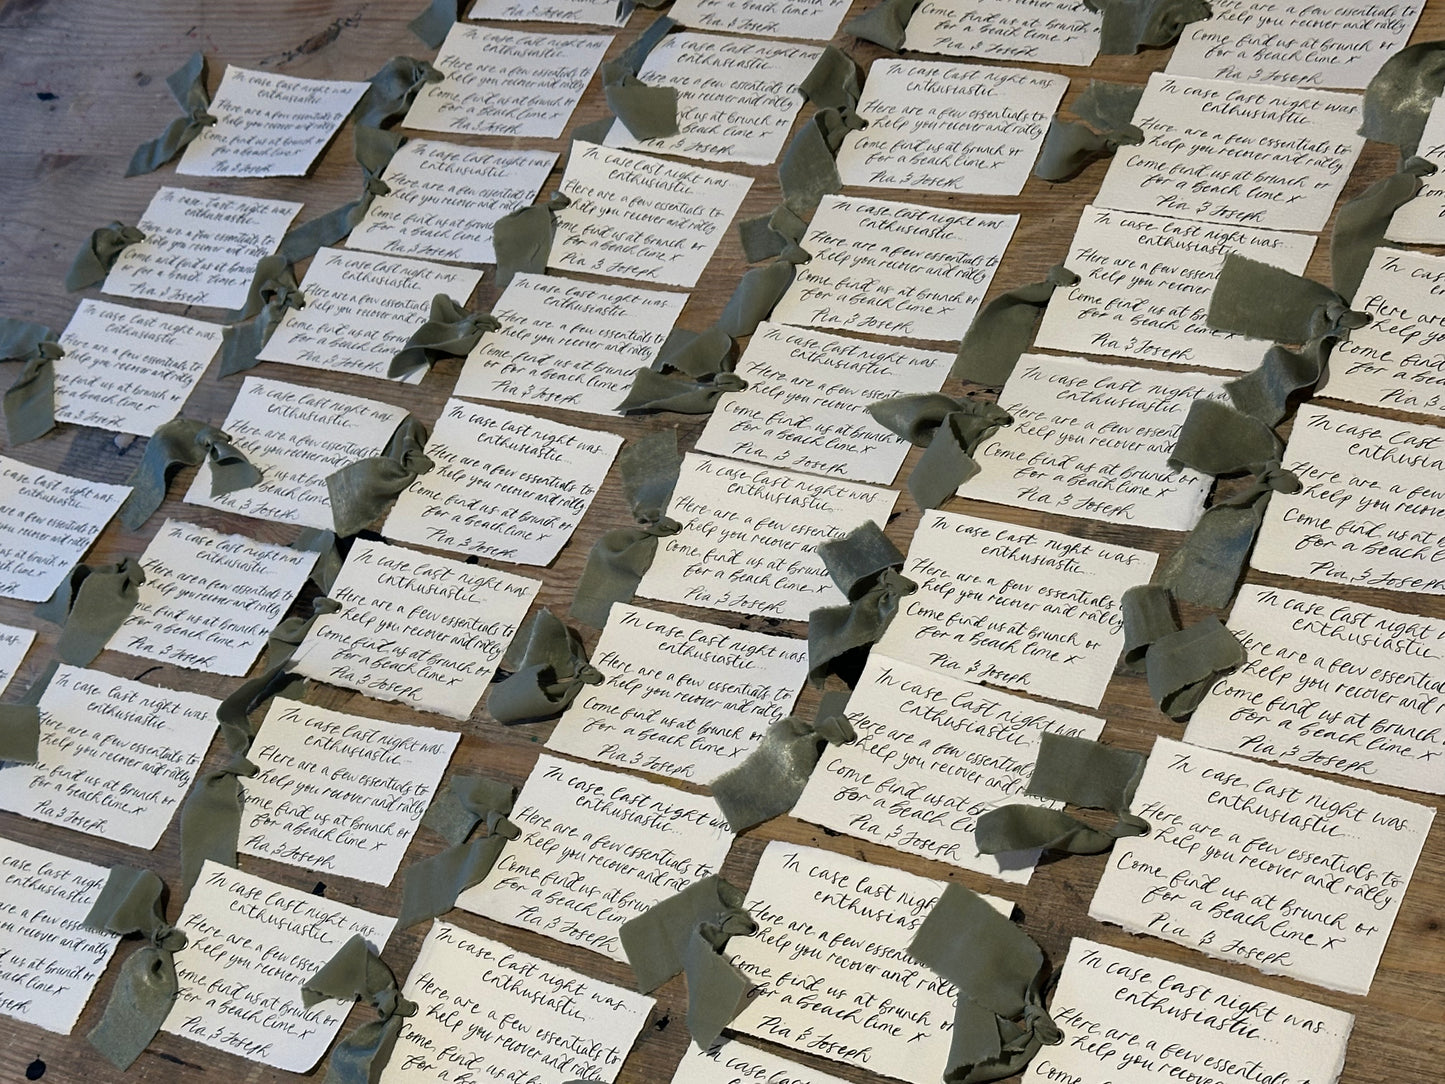 In case last night was...
enthusiastic...
Here are a few essentials to
help you recover and rally.
Come find us at brunch or
for a beach lime x
Pia & Joseph